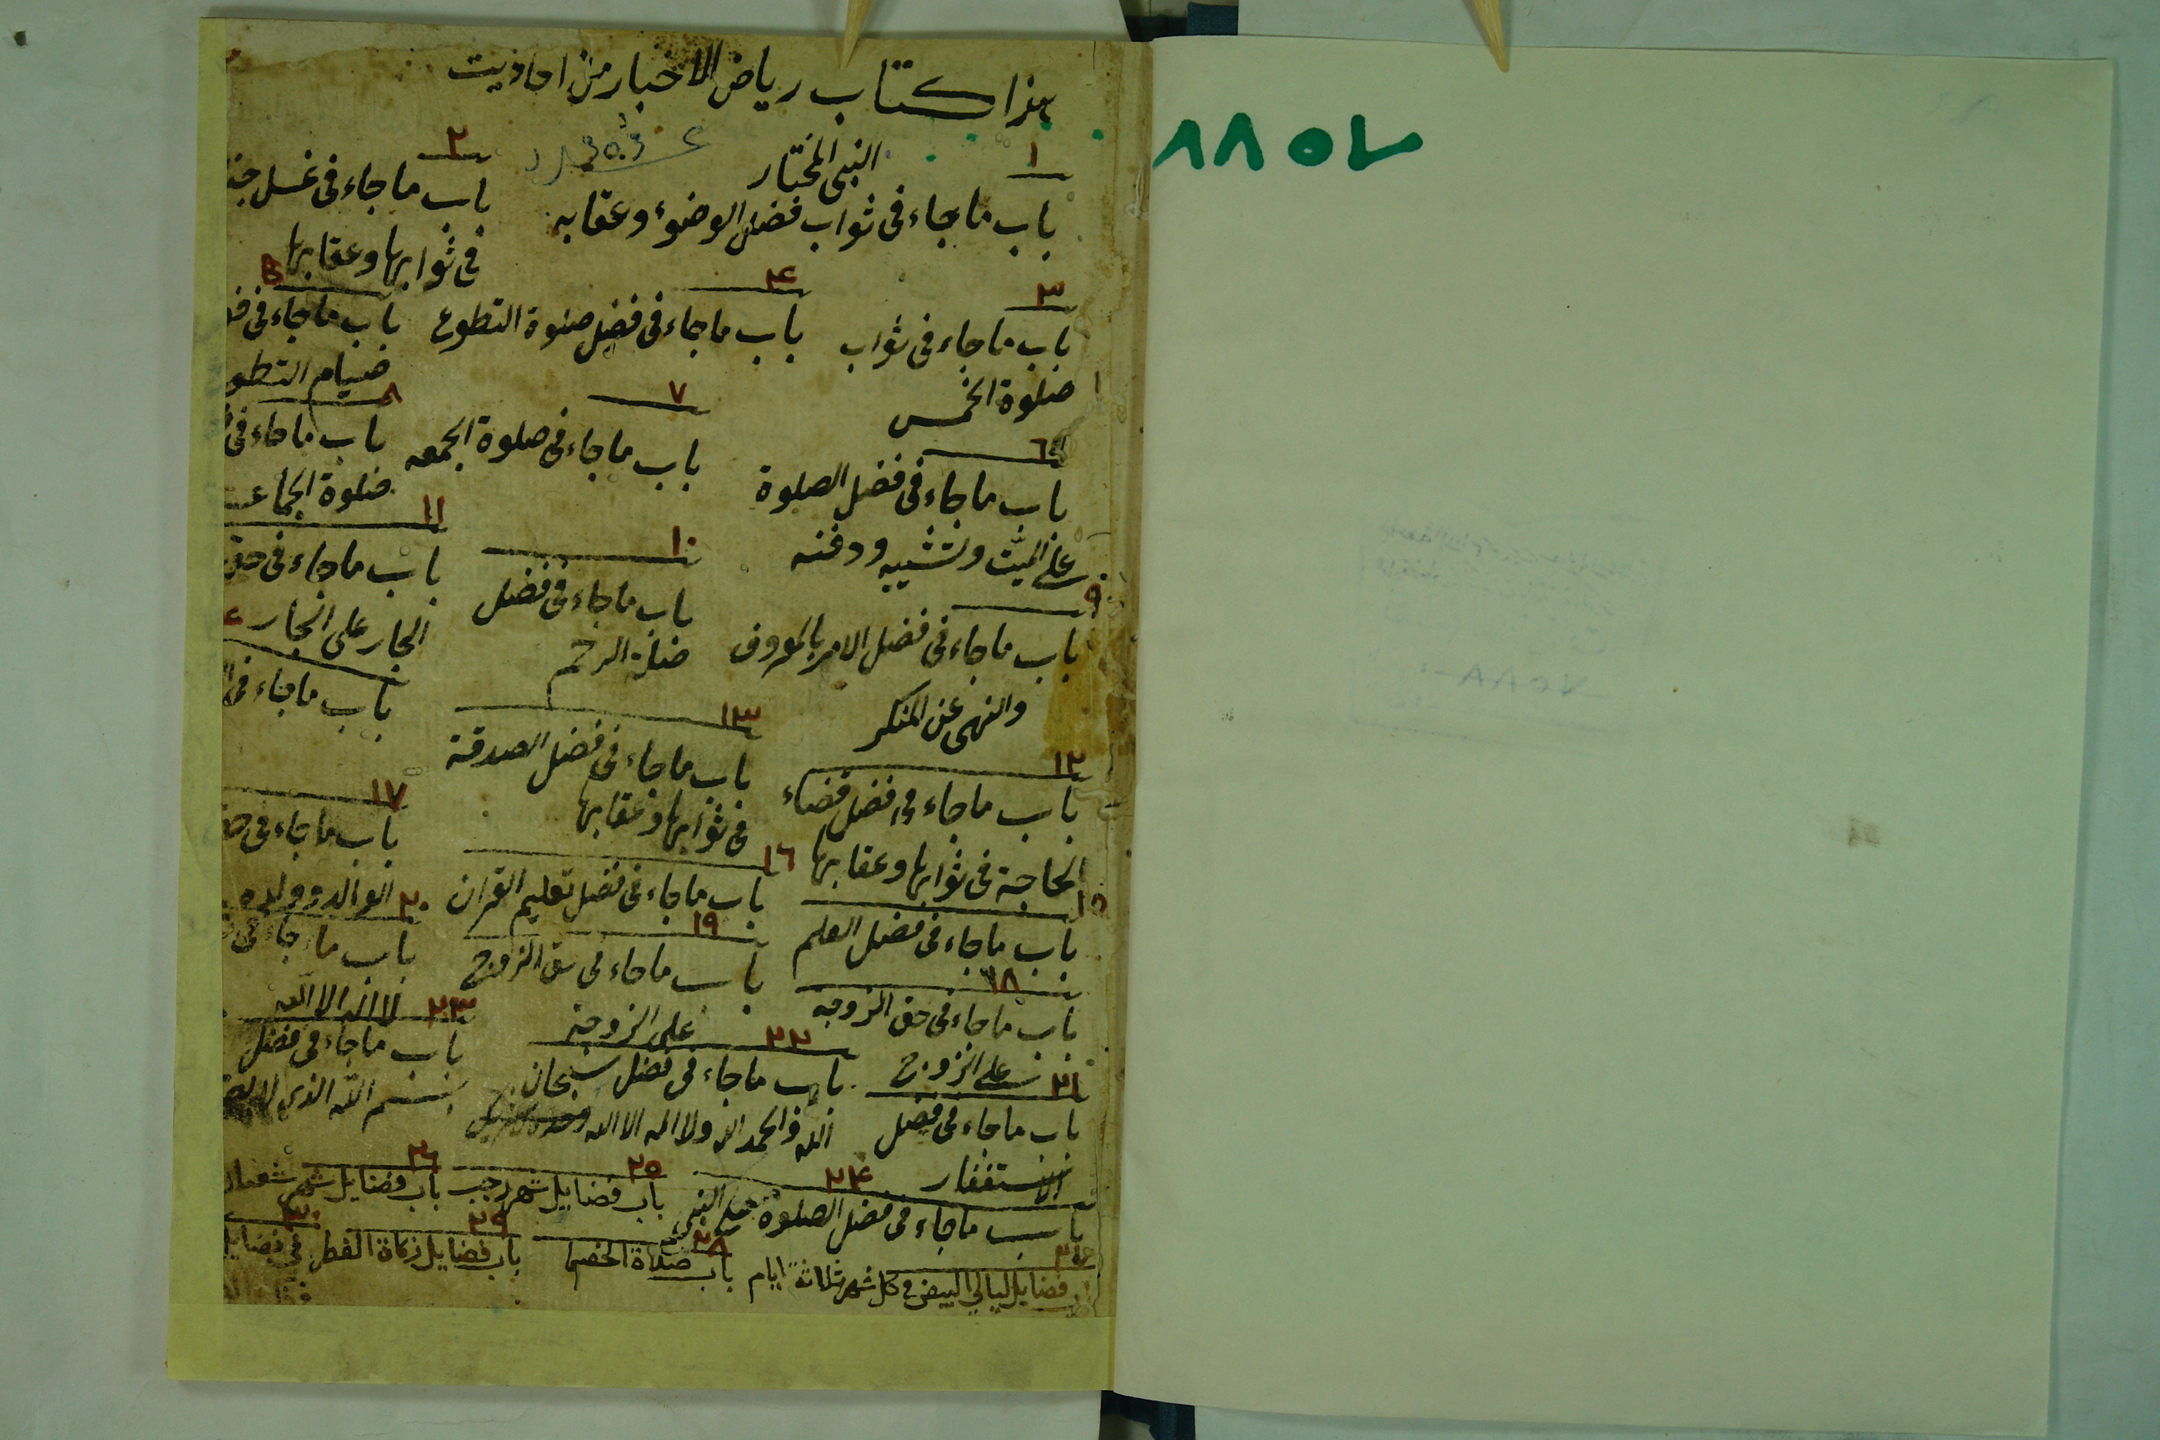 هذا كتاب رياض الاخبار من احاديث
النبي المختار
١
باب ما جاء في ثواب فضل الوضوء وعقابه
٢
باب ما جاء في غسل
في ثوابها وعقابها
٣
باب ما جاء في ثواب
صلوة الخمس
٤
باب ما جاء في فضل صلوة التطوع
٥
باب ما جاء في
صيام التطو
٦
باب ما جاء في فضل الصلوة
على الميت وتشييه ودفنه
٧
باب ما جاء في صلوة الجمعه
٨
باب ما جاء في
صلوة الجماعت
٩
باب ما جاء في فضل الامر بالمعروف
والنهى عن المنكر
١٠
باب ما جاء في فضل
صلة الرحم
١١
باب ما جاء في حق
الجار على الجار
باب ما جاء في
١٢
باب ما جاء في فضل قضاء
الحاجة في ثوابها وعقابها
١٣
باب ما جاء في فضل الصدقة
في ثوابها وعقابها
١٥
باب ما جاء في فضل العلم
١٦
باب ما جاء في فضل تعليم القران
١٧
باب ما جاء في
الوالد وولده
١٨
باب ما جاء في حق الزوجه
على الزوج
١٩
باب ما جاء في حق الزوج
على الزوجة
٢٠
باب ما جاء في
لا اله الا الله
٢١
باب ما جاء في فضل
الاستغفار
٢٢
باب ما جاء في فضل سبحان
الله والحمد لله ولا اله الا الله
٢٣
باب ما جاء في فضل
بسم الله الذي لا
٢٤
باب ما جاء في فضل الصلوة على النبي
٢٥
باب فضايل شهر رجب
٢٦
باب فضايل شهر شعبان
فضايل ليالي البيض في كل شهر ثلاثة ايام
٢٨
باب صلاة الخصما
٢٩
باب فضايل زكاة الفطر
٣٠
في فضايل
٨٨٥٧